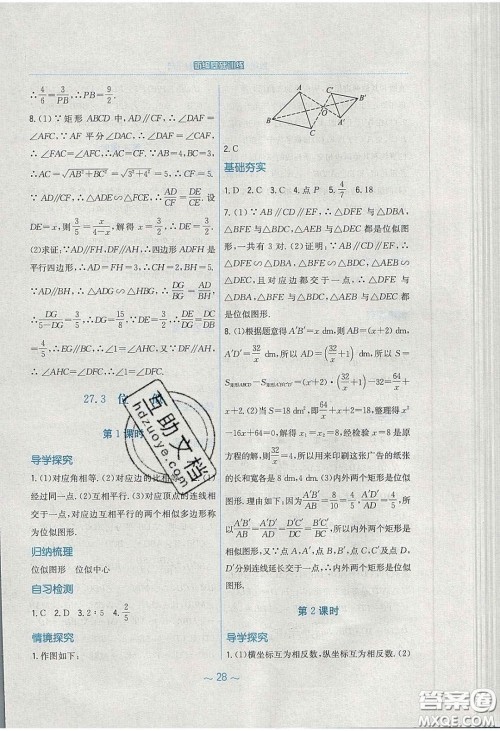 新编基础训练
∴4/6=3/PB,∴PB=9/2.
8.(1)∵矩形 ABCD 中,AD∥CF,∴∠DAF=
∠AFC,∵AF 平分∠DAC,∴∠DAF=∠FAC,
∴∠FAC=∠AFC,∴AC=CF,∵AB=4,BC=3,
∴AC=√(AB²+BC²)=√(3²+4²)=5,∴CF=5,
∵AD∥CF,∴△ADE∽△FCE,∴AD/CF=DE/CE.设
DE=x,则3/5=x/(4-x),解得 x=3/2,∴DE=3/2.
(2)求证:∵AD∥FH,DF∥AH,∴四边形 ADFH 是
平行四边形,∴AD=FH=3,∴CH=2,BH=5.
∵AD∥BH,∴△ADG∽△HBG,∴DG/BG=AD/BH,∴
∴EG∥BC,∴∠1=∠AHC,又∵DF∥AH,
∴∠AHC=∠DFC,∴∠1=∠DFC.
27.3 位
第1课时
导学探究
1.(1)对应角相等.(2)对应边的比相等.
经过同一点.(2)互相平行.(3)对应顶点的连线相
交于一点,对应边互相平行的两个相似多边形称
为位似图形.
归纳梳理
位似图形 位似中心
自习检测
1.C 2.D 3.2∶5 4.
情境探究
1.作图如下:
A B C O A′ B′ C′
2.C
基础夯实
1.D 2.C 3.C 4.点P 5.4/7 6.18
7.(1)∵AB∥CD∥EF,∴△DFE 与△DBA,
△BFE 与△BDC,△AEB 与△DEC 都是位似图
形,一共有 3 对.(2)证明:∵AB∥CD∥EF,
∴△DFE∽△DBA,△BFE∽△BDC,△AEB∽
△DEC,且对应边都交于一点,∴△DFE 与
△DBA,△BFE 与△BDC,△AEB 与△DEC 都是
位似图形.
8.(1)根据题意得 A′B′=x dm,则 AB=(x+2) dm,
B′C′=32/x dm,所以 AD=(32/x+1) dm,所以 S=
S矩形ABCD=(x+2)·(32/x+1)=x+64/x+
34.(2)当 S=18 dm²,即 x+64/x+34=18 时,整理得
x²-16x+64=0,解得 x=8,经检验 x=8 是原
方程的解,所以用来印刷这张广告的纸张
的长和宽各是 8 dm,4 dm.(3)内外两个矩形是位似
图形.理由如下:因为A′B′/AB=8/10=4/5,A′D′/AD=4/5,所
以A′B′/AB=A′D′/AD,所以内外两个矩形是相
似图形,又∵点 A′,点 B′,点 C′,点 D′与点 A,B,C,
D 分别连线延长交于一点,∴内外两个矩形是位似
图形.
第2课时
导学探究
1.(1)横坐标互为相反数,纵坐标互为相反数.(2)
~28~
互助文档
hdzuoye.com
答案圈
MXQE.COM